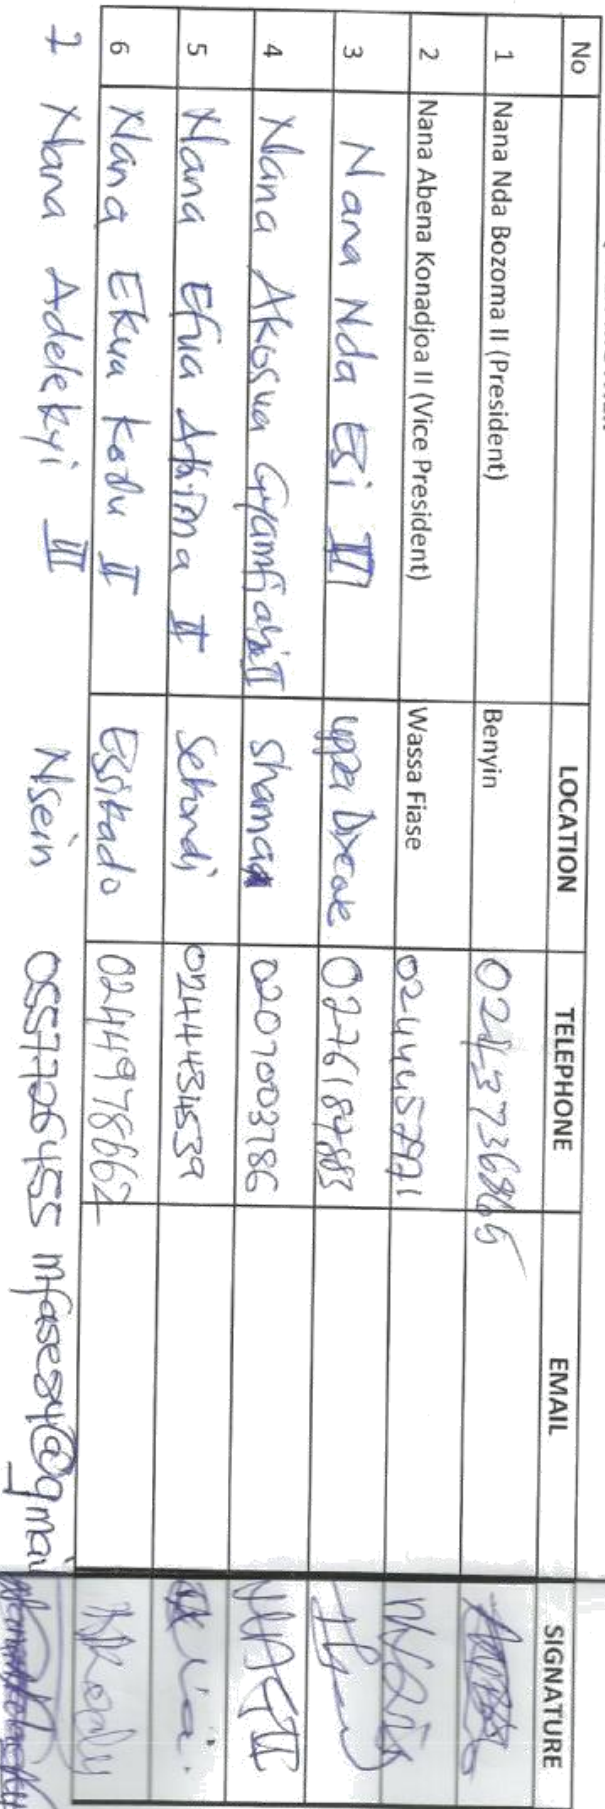 No LOCATION TELEPHONE EMAIL SIGNATURE
1 Nana Nda Bozoma II (President) Benyin
2 Nana Abena Konadjoa II (Vice President) Wassa Fiase 0244457971
3 Nana Nda Esi III Upper Dixcove
4 Nana Akosua Gyamfiaba II Shama 0207003786
5 Nana Efua Atsima II Sekondi 0244434539
6 Nana Ekua Kodu II Essikado 0244978662
7 Nana Adelekyi III Nsein 0557726455 mfase84@gmai